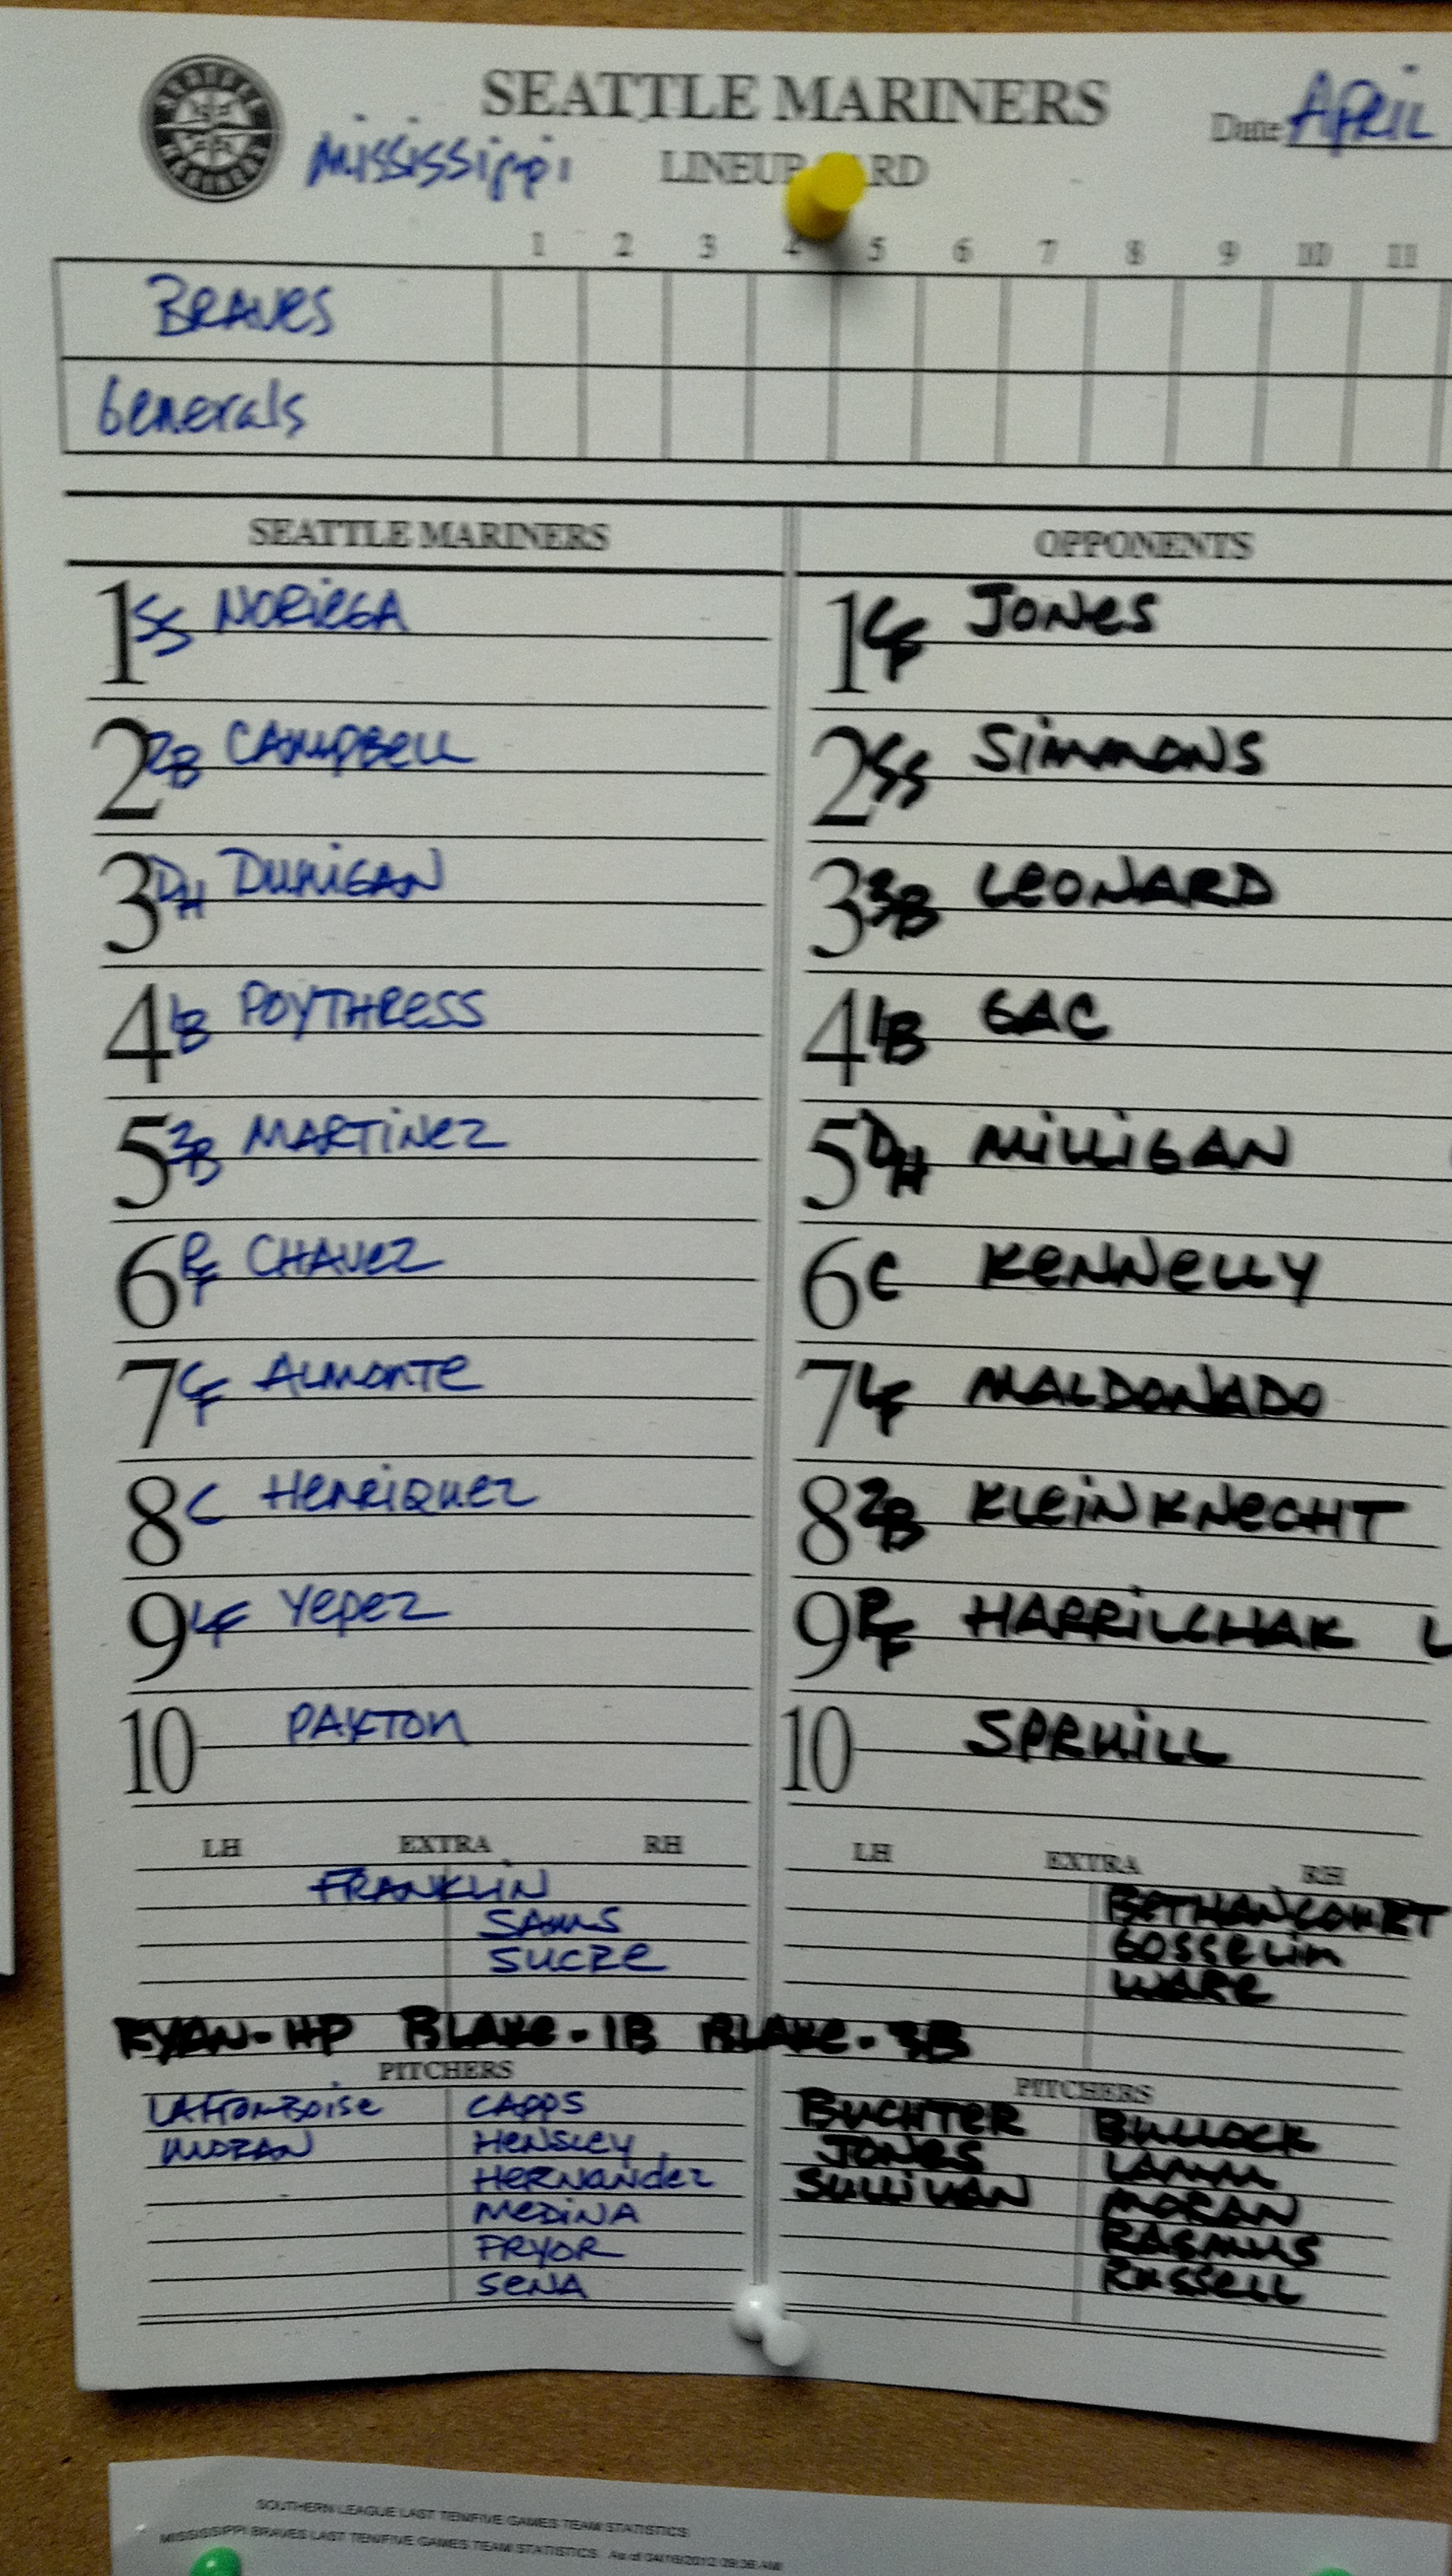 SEATTLE MARINERS
Date APRIL
Mississippi
LINEUP CARD
1 2 3 4 5 6 7 8 9 10 11
BRAVES
Generals
SEATTLE MARINERS
OPPONENTS
1 SS NORIEGA
1 CF JONES
2 2B CAMPBELL
2 SS SIMMONS
3 DH DUNIGAN
3 3B LEONARD
4 1B POYTHRESS
4 1B GAC
5 3B MARTINEZ
5 DH MILLIGAN
6 RF CHAVEZ
6 C KENNELLY
7 CF ALMONTE
7 LF MALDONADO
8 C HENRIQUEZ
8 2B KLEINKNECHT
9 LF YEPEZ
9 RF HARRILCHAK L
10 PAXTON
10 SPRUILL
LH EXTRA RH
LH EXTRA RH
FRANKLIN
SAMS
SUCRE
BETHANCOURT
GOSSELIN
WARE
RYAN - HP BLAKE - 1B BLAKE - 3B
PITCHERS
PITCHERS
LAFROMBOISE CAPPS
MORAN HENSLEY
HERNANDEZ
MEDINA
PRYOR
SENA
BUCHTER BULLOCK
JONES LAMM
SULLIVAN MORAN
RASMUS
RUSSELL
SOUTHERN LEAGUE LAST TEN/FIVE GAMES TEAM STATISTICS
MISSISSIPPI BRAVES LAST TEN/FIVE GAMES TEAM STATISTICS As of 04/16/2012 09:36 AM